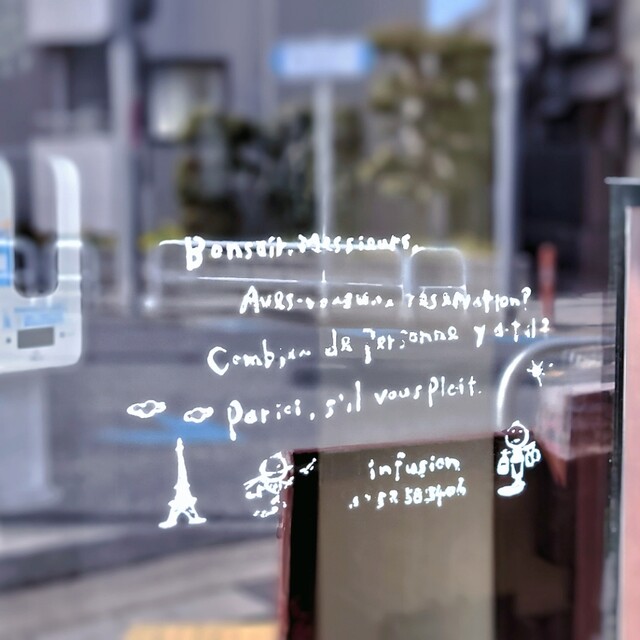 Bonsoir, Messieurs,
Avez-vous une réservation?
Combien de personne y a-t-il?
Par ici, s'il vous plaît.
infusion